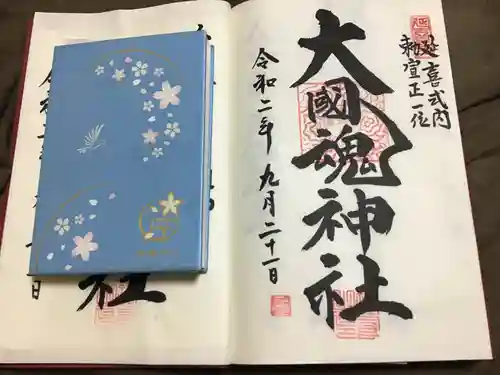 延喜式内
勅宣正一位
大國魂神社
令和二年 九月二十一日
社
日